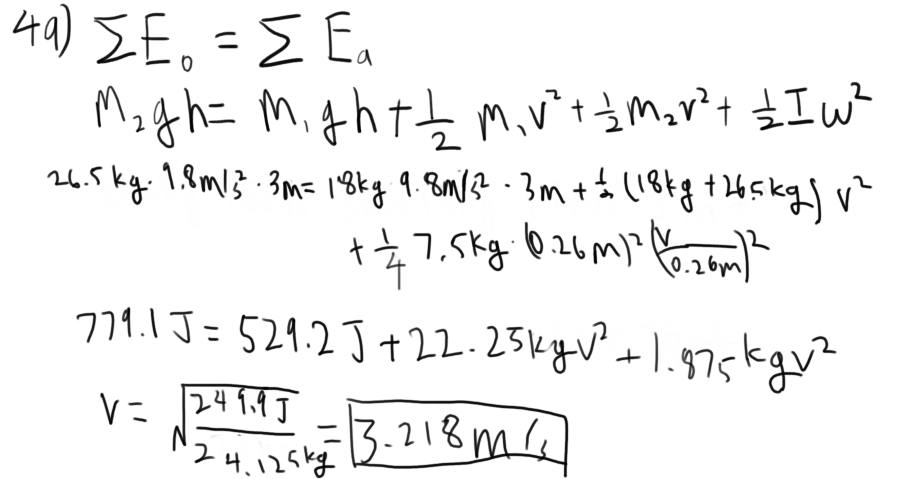 4a) ΣE₀ = ΣEₐ
m₂gh = m₁gh + 1/2 m₁v² + 1/2 m₂v² + 1/2 Iω²
26.5kg · 9.8m/s² · 3m = 18kg · 9.8m/s² · 3m + 1/2 (18kg + 26.5kg) v²
+ 1/4 7.5kg · (0.26m)² (v/0.26m)²
779.1J = 529.2J + 22.25kgv² + 1.875kgv²
v = √(249.9J/24.125kg) = 3.218m/s